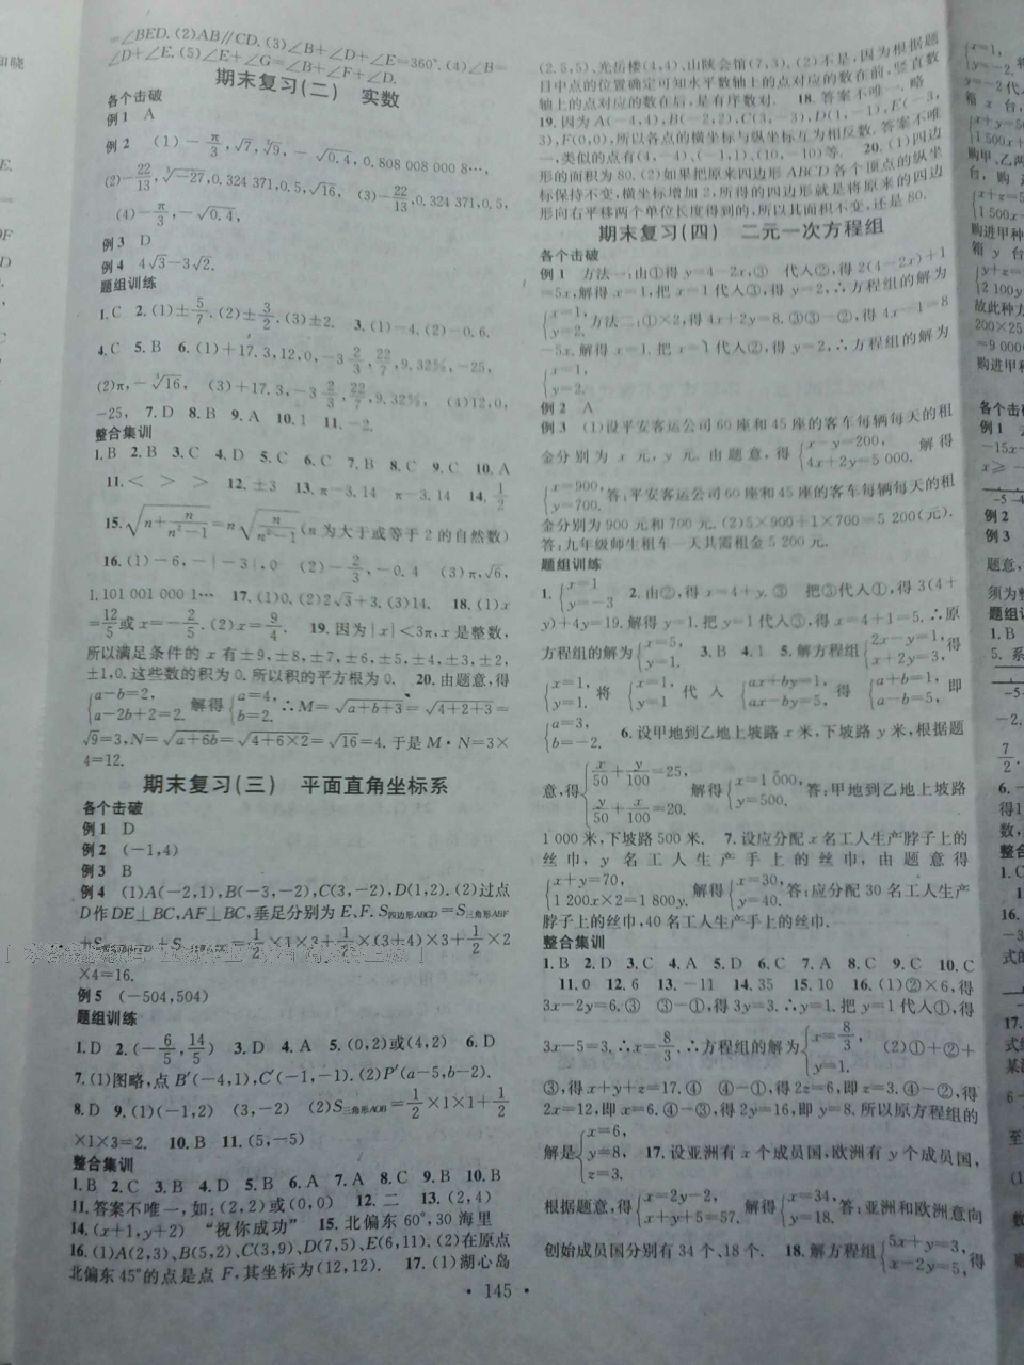 =∠BED. (2)AB∥CD. (3)∠B+∠D+∠E=360°. (4)∠B=
∠D+∠E. (5)∠E+∠G=∠B+∠F+∠D.
期末复习(二) 实数
各个击破
例1 A
例2 (1)-π/3,√7,∛9,-√0.4,0.808 008 000 8…,
(2)-22/13,∛-27,0.324 371,0.5,√16, (3)-22/13,0.324 371,0.5,
(4)-π/3,-√0.4,
例3 D
例4 4√3-3√2.
题组训练
1.C 2.(1)±5/7. (2)±3/2. (3)±2. 3.(1)-4. (2)-0.6.
4.C 5.B 6.(1)+17.3,12,0,-3 2/3,22/7,9.32%,-25,
(2)π,-∛16, (3)+17.3,-3 2/3,22/7,9.32%, (4)12,0,
-25, 7.D 8.B 9.A 10.1 11.-2.
整合集训
1.B 2.B 3.C 4.D 5.C 6.C 7.B 8.C 9.C 10.A
11.< > > 12.±3 13.π-3.14 π-3.14 14.1/2
15.√(n+n/(n²-1))=n√(n/(n²-1))(n为大于或等于2的自然数)
16.(1)-6,-|-3|,0 (2)-2/3,-0.4 (3)π,√6,
1.101 001 000 1… 17.(1)0. (2)2√3+3. (3)14. 18.(1)x
=12/5或x=-2/5. (2)x=9/4. 19.因为|x|<3π,x是整数,
所以满足条件的x有±9,±8,±7,±6,±5,±4,±3,±2,
±1,0.这些数的积为0.所以积的平方根为0. 20.由题意,得
{a-b=2, a-2b+2=2. 解得{a=4, b=2. ∴M=√(a+b+3)=√(4+2+3)=
√9=3,N=√(a+6b)=√(4+6×2)=√16=4.于是M·N=3×
4=12.
期末复习(三) 平面直角坐标系
各个击破
例1 D
例2 (-1,4)
例3 B
例4 (1)A(-2,1),B(-3,-2),C(3,-2),D(1,2). (2)过点
D作DE⊥BC,AF⊥BC,垂足分别为E,F. S四边形ABCD=S三角形ABF
=1/2×1×3+1/2×(3+4)×3+1/2×2
×4=16.
例5 (-504,504)
题组训练
1.D 2.(-6/5,14/5) 3.D 4.A 5.(0,2)或(4,2) 6.D
7.(1)图略,点B′(-4,1),C′(-1,-1). (2)P′(a-5,b-2).
8.D 9.(1)(-1,2) (3,-2) (2)S三角形AOB=1/2×1×1+1/2
×1×3=2. 10.B 11.(5,-5)
整合集训
1.B 2.C 3.B 4.D 5.B 6.A 7.A 8.C 9.B 10.B
11.答案不唯一,如:(2,2)或(0,0) 12.二 13.(2,4)
14.(x+1,y+2) “祝你成功” 15.北偏东60°,30海里
16.(1)A(2,3)、B(5,2)、C(3,9)、D(7,5)、E(6,11). (2)在原点
北偏东45°的点是点F,其坐标为(12,12). 17.(1)湖心岛
(2.5,5),光岳楼(4,4),山陕会馆(7,3). (2)不是,因为根据题
目中点的位置确定可知水平数轴上的点对应的数在前,竖直数
轴上的点对应的数在后,是有序数对. 18.答案不唯一,略
19.因为A(-4,4),B(-2,2),C(3,-3),D(1,-1),E(-3,
3),F(0,0),所以各点的横坐标与纵坐标互为相反数.答案不唯
一,类似的点有(4,-4),(-1,1),(10,-10)等. 20.(1)四边
形的面积为80. (2)如果把原来四边形ABCD各个顶点的纵坐
标保持不变,横坐标增加2,所得的四边形就是将原来的四边
形向右平移两个单位长度得到的,所以其面积不变,还是80.
期末复习(四) 二元一次方程组
各个击破
例1 方法一:由①得y=4-2x,③ 代入②,得2(4-2x)+1
=5x,解得x=1,把x=1代入③,得y=2,∴方程组的解为
{x=1, y=2. 方法二:①×2,得4x+2y=8.③③-②,得4x-1=8
-5x.解得x=1.把x=1代入②,得y=2,∴方程组的解为
{x=1, y=2.
例2 A
例3 (1)设平安客运公司60座和45座的客车每辆每天的租
金分别为x元,y元.由题意,得{x-y=200, 4x+2y=5 000. 解得
{x=900, y=700. 答:平安客运公司60座和45座的客车每辆每天的租
金分别为900元和700元. (2)5×900+1×700=5 200(元).
答:九年级师生租车一天共需租金5 200元.
题组训练
1.{x=1 y=-3 2.由②,得x=4+y.③ 把③代入①,得3(4+
y)+4y=19.解得y=1.把y=1代入③,得x=4+1=5.∴原
方程组的解为{x=5, y=1. 3.B 4.1 5.解方程组{2x-y=1, x+2y=3, 得
{x=1, y=1. 将{x=1, y=1代入{ax+by=1, ax-by=5, 得{a+b=1, a-b=5, 即
{a=3, b=-2. 6.设甲地到乙地上坡路x米,下坡路y米,根据题
意,得{x/50+y/100=25, y/50+x/100=20. 解得{x=1 000, y=500. 答:甲地到乙地上坡路
1 000米,下坡路500米. 7.设应分配x名工人生产脖子上的
丝巾,y名工人生产手上的丝巾,由题意得
{x+y=70, 1 200x×2=1 800y. 解得{x=30, y=40. 答:应分配30名工人生产
脖子上的丝巾,40名工人生产手上的丝巾.
整合集训
1.B 2.D 3.C 4.A 5.D 6.C 7.A 8.C 9.C 10.C
11.0 12.6 13.-11 14.35 15.10 16.(1)②×6,得
3x-2y=6.③ ③-①,得3y=3.∴y=1.把y=1代入①,得
3x-5=3.∴x=8/3.∴方程组的解为{x=8/3, y=1. (2)①+②+
③,得x+y+z=17.④ ④-①,得2z=6,即z=3.④-②,得
2x=12,即x=6.④-③,得2y=16,即y=8.所以原方程组的
解是{x=6, y=8, z=3. 17.设亚洲有x个成员国,欧洲有y个成员国,
根据题意,得{x=2y-2, x+y+5=57. 解得{x=34, y=18. 答:亚洲和欧洲意向
创始成员国分别有34个、18个. 18.解方程组{5x+y=3, x-2y=5, 得
• 145 •